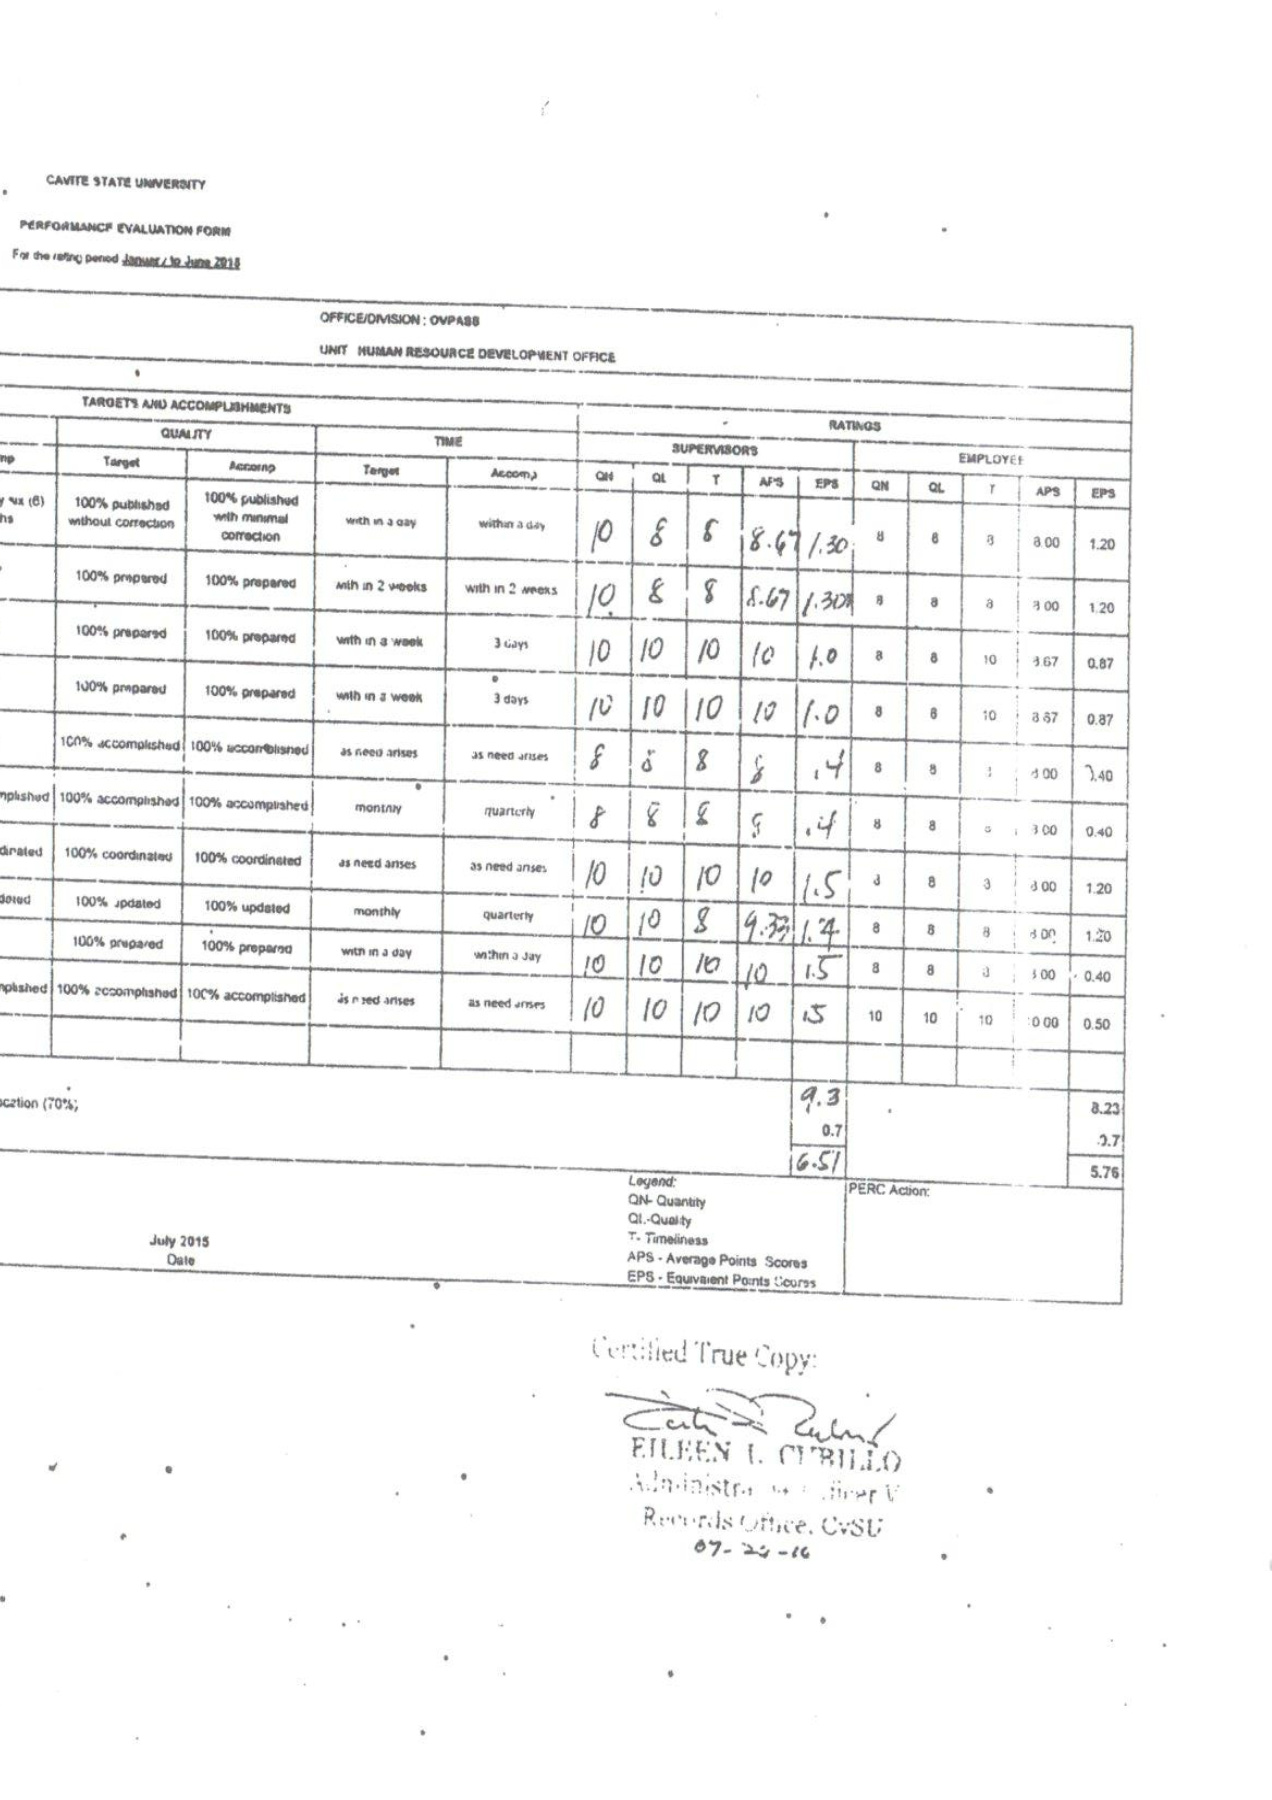 CAVITE STATE UNIVERSITY
PERFORMANCE EVALUATION FORM
For the rating period January to June 2015
OFFICE/DIVISION : OVPASS
UNIT HUMAN RESOURCE DEVELOPMENT OFFICE
TARGETS AND ACCOMPLISHMENTS RATINGS
QUALITY TIME SUPERVISORS EMPLOYEE
mp Target Accomp Target Accomp QN QL T APS EPS QN QL T APS EPS
y six (6) hs 100% published without correction 100% published with minimal correction with in a day within a day 10 8 8 8.67 1.30 8 8 8 8.00 1.20
100% prepared 100% prepared with in 2 weeks with in 2 weeks 10 8 8 8.67 1.30 8 8 8 8.00 1.20
100% prepared 100% prepared with in a week 3 days 10 10 10 10 1.0 8 8 10 8.67 0.87
100% prepared 100% prepared with in a week 3 days 10 10 10 10 1.0 8 8 10 8.67 0.87
100% accomplished 100% accomplished as need arises as need arises 8 8 8 8 .4 8 8 8.00 0.40
mplished 100% accomplished 100% accomplished monthly quarterly 8 8 8 8 .4 8 8 8.00 0.40
dinated 100% coordinated 100% coordinated as need arises as need arises 10 10 10 10 1.5 8 8 8 8.00 1.20
dated 100% updated 100% updated monthly quarterly 10 10 8 9.33 1.4 8 8 8 8.00 1.20
100% prepared 100% prepared with in a day within a day 10 10 10 10 .5 8 8 8 8.00 0.40
mplished 100% accomplished 100% accomplished as need arises as need arises 10 10 10 10 .5 10 10 10 10.00 0.50
9.3 8.23
ocation (70%) 0.7 0.7
6.51 5.76
Legend: PERC Action:
QN- Quantity
QL-Quality
July 2015 T- Timeliness
Date APS - Average Points Scores
EPS - Equivalent Points Scores
Certified True Copy:
EILEEN L. CUBILLO
Administrative Officer V
Records Office, CvSU